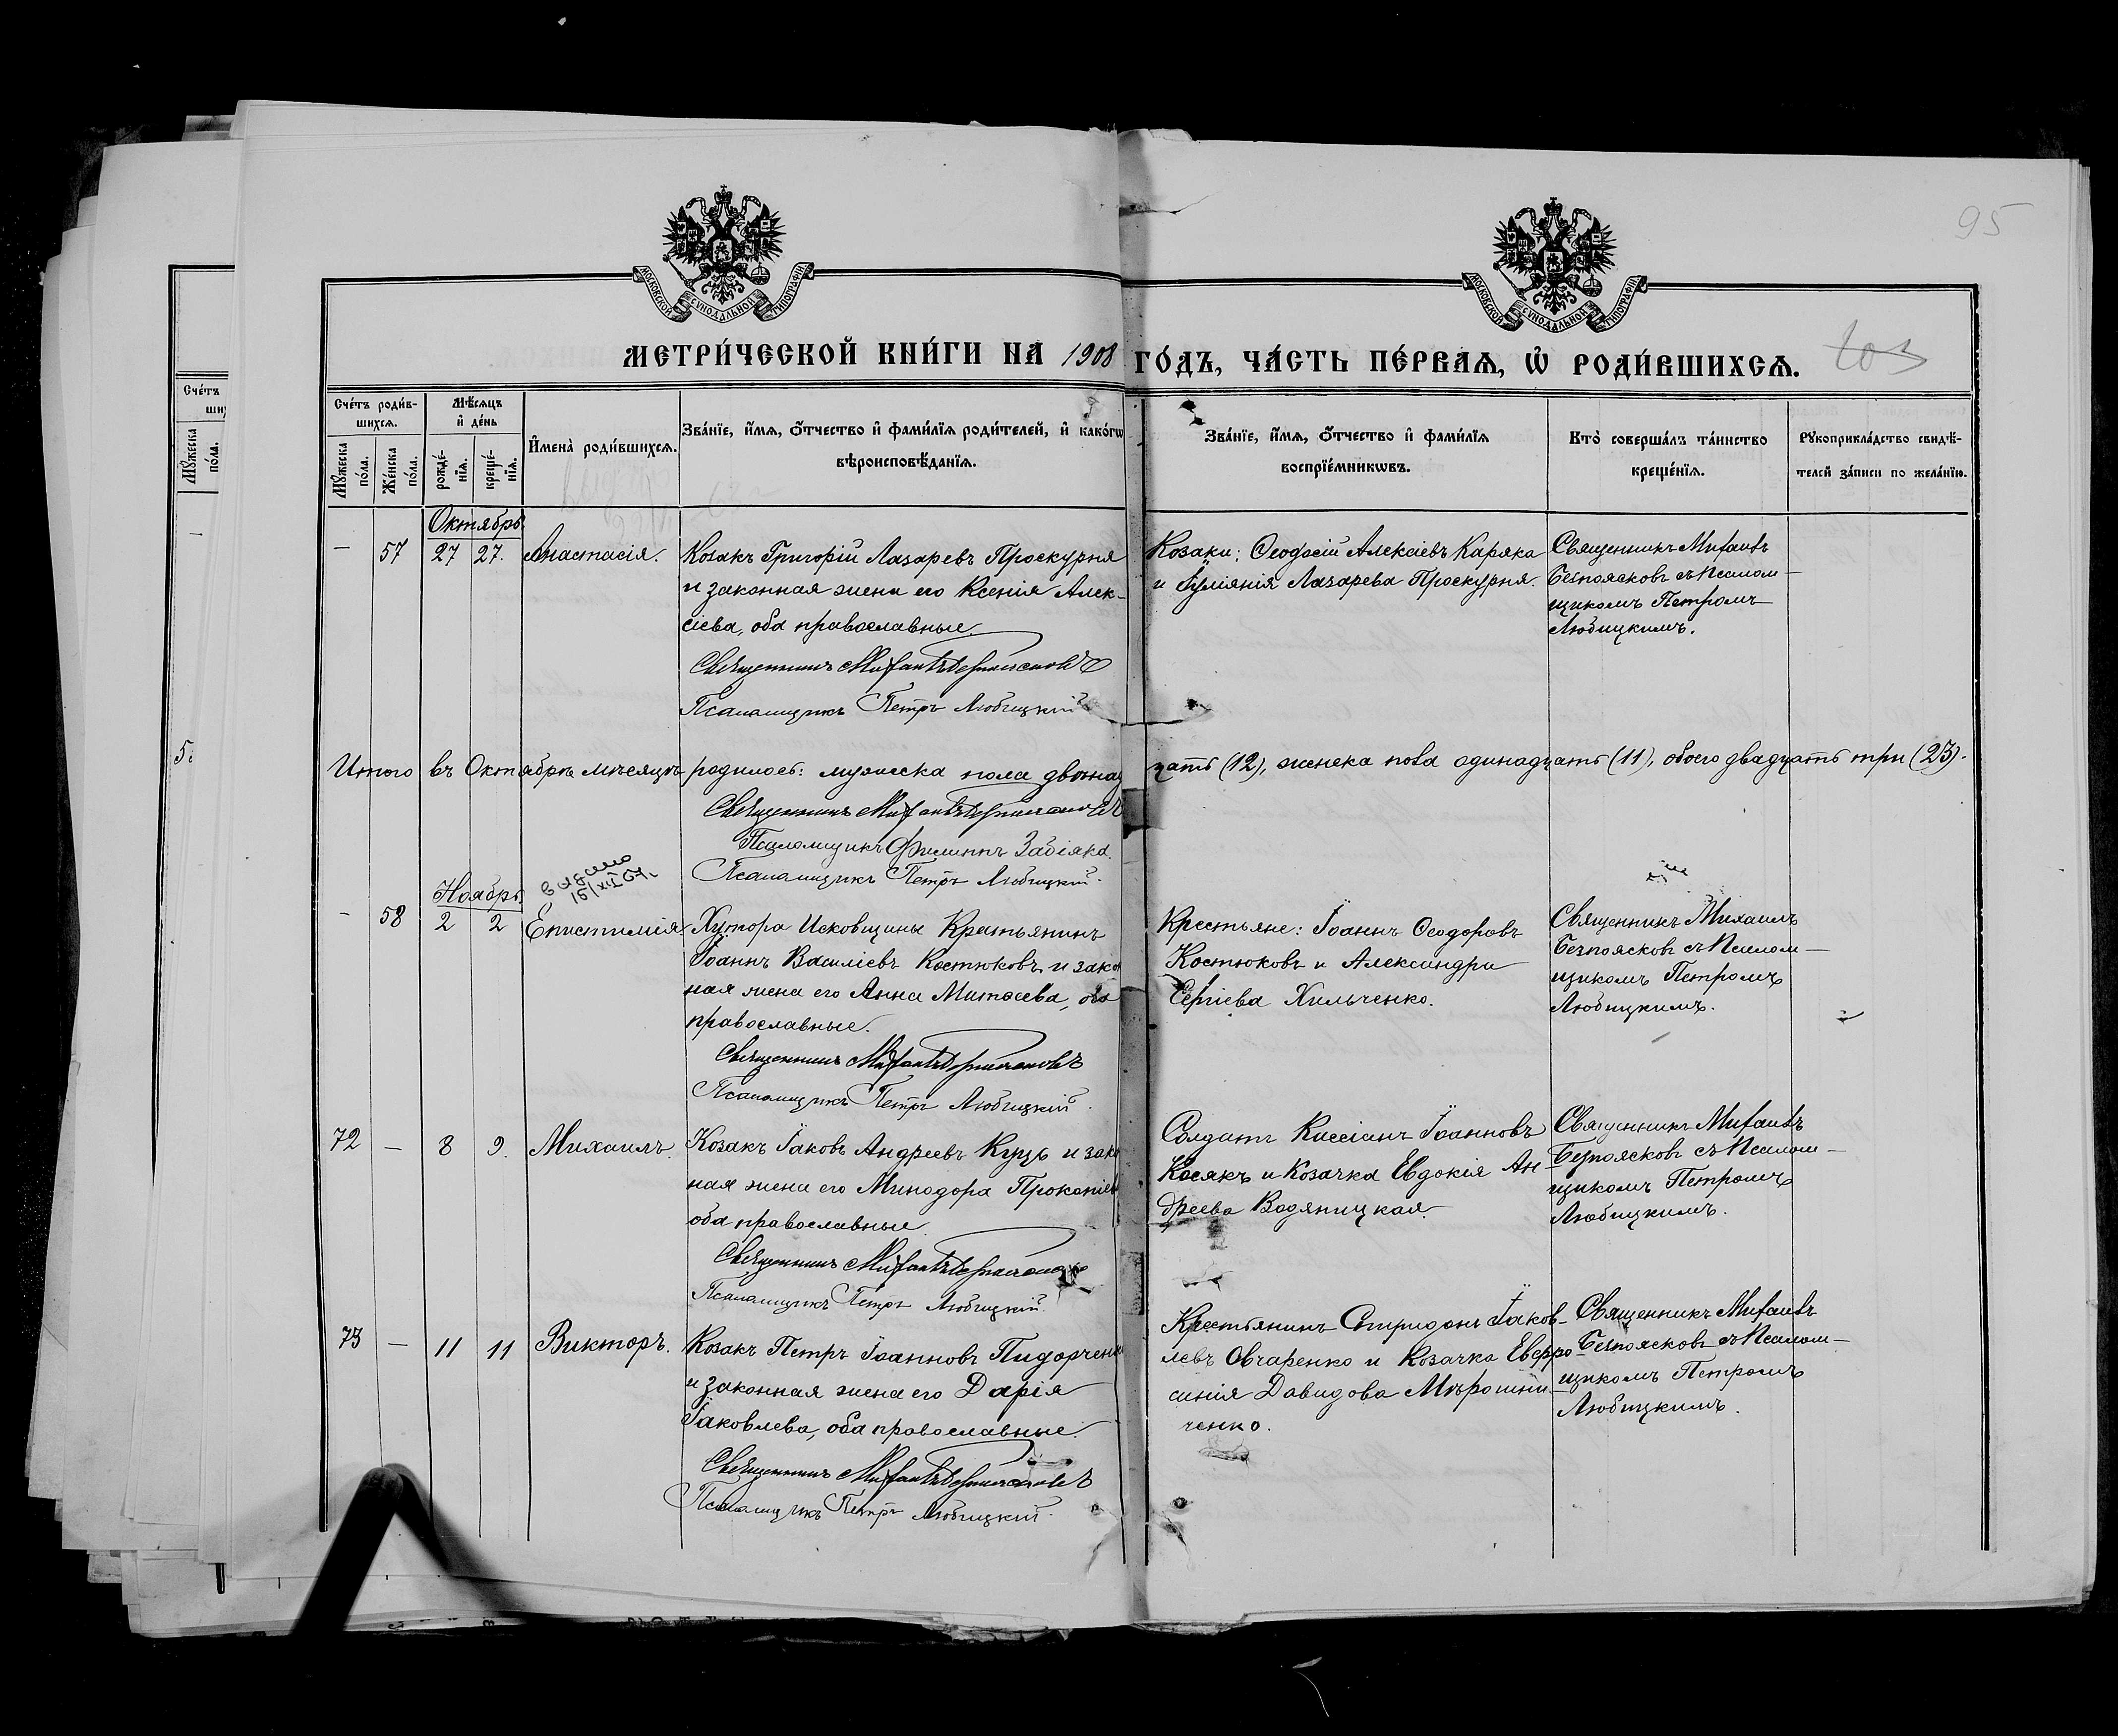 95
МОСКОВСКОЙ СѴНОДАЛЬНОЙ ТИПОГРАФІИ
МОСКОВСКОЙ СѴНОДАЛЬНОЙ ТИПОГРАФІИ
МЕТРИ́ЧЕСКОЙ КНИ́ГИ НА 1908 ГО́ДЪ, ЧА́СТЬ ПЕ́РВАѦ, Ѡ҆ РОДИ́ВШИХСѦ.
103
Сче́тъ роди́в-
шихсѧ.
Мꙋ́жеска по́ла.
Же́нска по́ла.
Мѣ́сѧцъ и҆ де́нь
рожде́-нїѧ.
креще́-нїѧ.
И҆мена̀ роди́вшихсѧ.
Зва́нїе, и҆́мѧ, ѻ҆́тчество и҆ фами́лїѧ роди́телей, и҆ како́гѡ
вѣроисповѣ́данїѧ.
Зва́нїе, и҆́мѧ, ѻ҆́тчество и҆ фами́лїѧ
воспрїе́мникѡвъ.
Кто̀ соверша́лъ та́инство
креще́нїѧ.
Рꙋкоприкла́дство свидѣ́-
телей за́писи по жела́нїю.
Октябрь
— 57 27 27. Анастасія.
Козакъ Григорій Лазаревъ Проскурня
и законная жена его Ксенія Алек-
сіева, оба православные.
Священникъ Михаилъ Безпоясковъ
Псаломщикъ Петръ Любицкій
Козаки: Ѳеодосій Алексіевъ Каряка
и Іуліянія Лазарева Проскурня.
Священникъ Михаилъ
Безпоясковъ съ Псалом-
щикомъ Петромъ
Любицкимъ.
Итого въ Октябрѣ мѣсяцѣ родилось: мужеска пола двѣнад цать (12), женска пола одинадцать (11), обоего двадцать три (23).
Священникъ Михаилъ Безпоясковъ
Псаломщикъ Филиппъ Забіяка.
Псаломщикъ Петръ Любицкій.
Ноябрь.
видано
— 58 2 2 Епистимія
Хутора Исковщины Крестьянинъ
Іоаннъ Василіевъ Костюковъ и закон
ная жена его Анна Матѳеева, оба
православные.
Священникъ Михаилъ Безпоясковъ
Псаломщикъ Петръ Любицкій.
Крестьяне: Іоаннъ Ѳеодоровъ
Костюковъ и Александра
Сергіева Хильченко.
Священникъ Михаилъ
Безпоясковъ съ Псалом-
щикомъ Петромъ
Любицкимъ.
72 — 8 9. Михаилъ.
Козакъ Іаковъ Андреевъ Куць и зако
ная жена его Минодора Прокопіев
оба православные.
Священникъ Михаилъ Безпоясковъ
Псаломщикъ Петръ Любицкій.
Солдатъ Кассіанъ Іоанновъ
Косякъ и Козачка Евдокія Ан-
дреева Водяницкая.
Священникъ Михаилъ
Безпоясковъ съ Псалом-
щикомъ Петромъ
Любицкимъ.
73 — 11 11 Викторъ.
Козакъ Петръ Іоанновъ Пидорченк
и законная жена его Дарія
Іаковлева, оба православные.
Священникъ Михаилъ Безпоясковъ
Псаломщикъ Петръ Любицкій.
Крестьянинъ Спиридонъ Іаков-
левъ Овчаренко и Козачка Евфро-
синія Давидова Мѣрошни-
ченко.
Священникъ Михаилъ
Безпоясковъ съ Псалом-
щикомъ Петромъ
Любицкимъ.